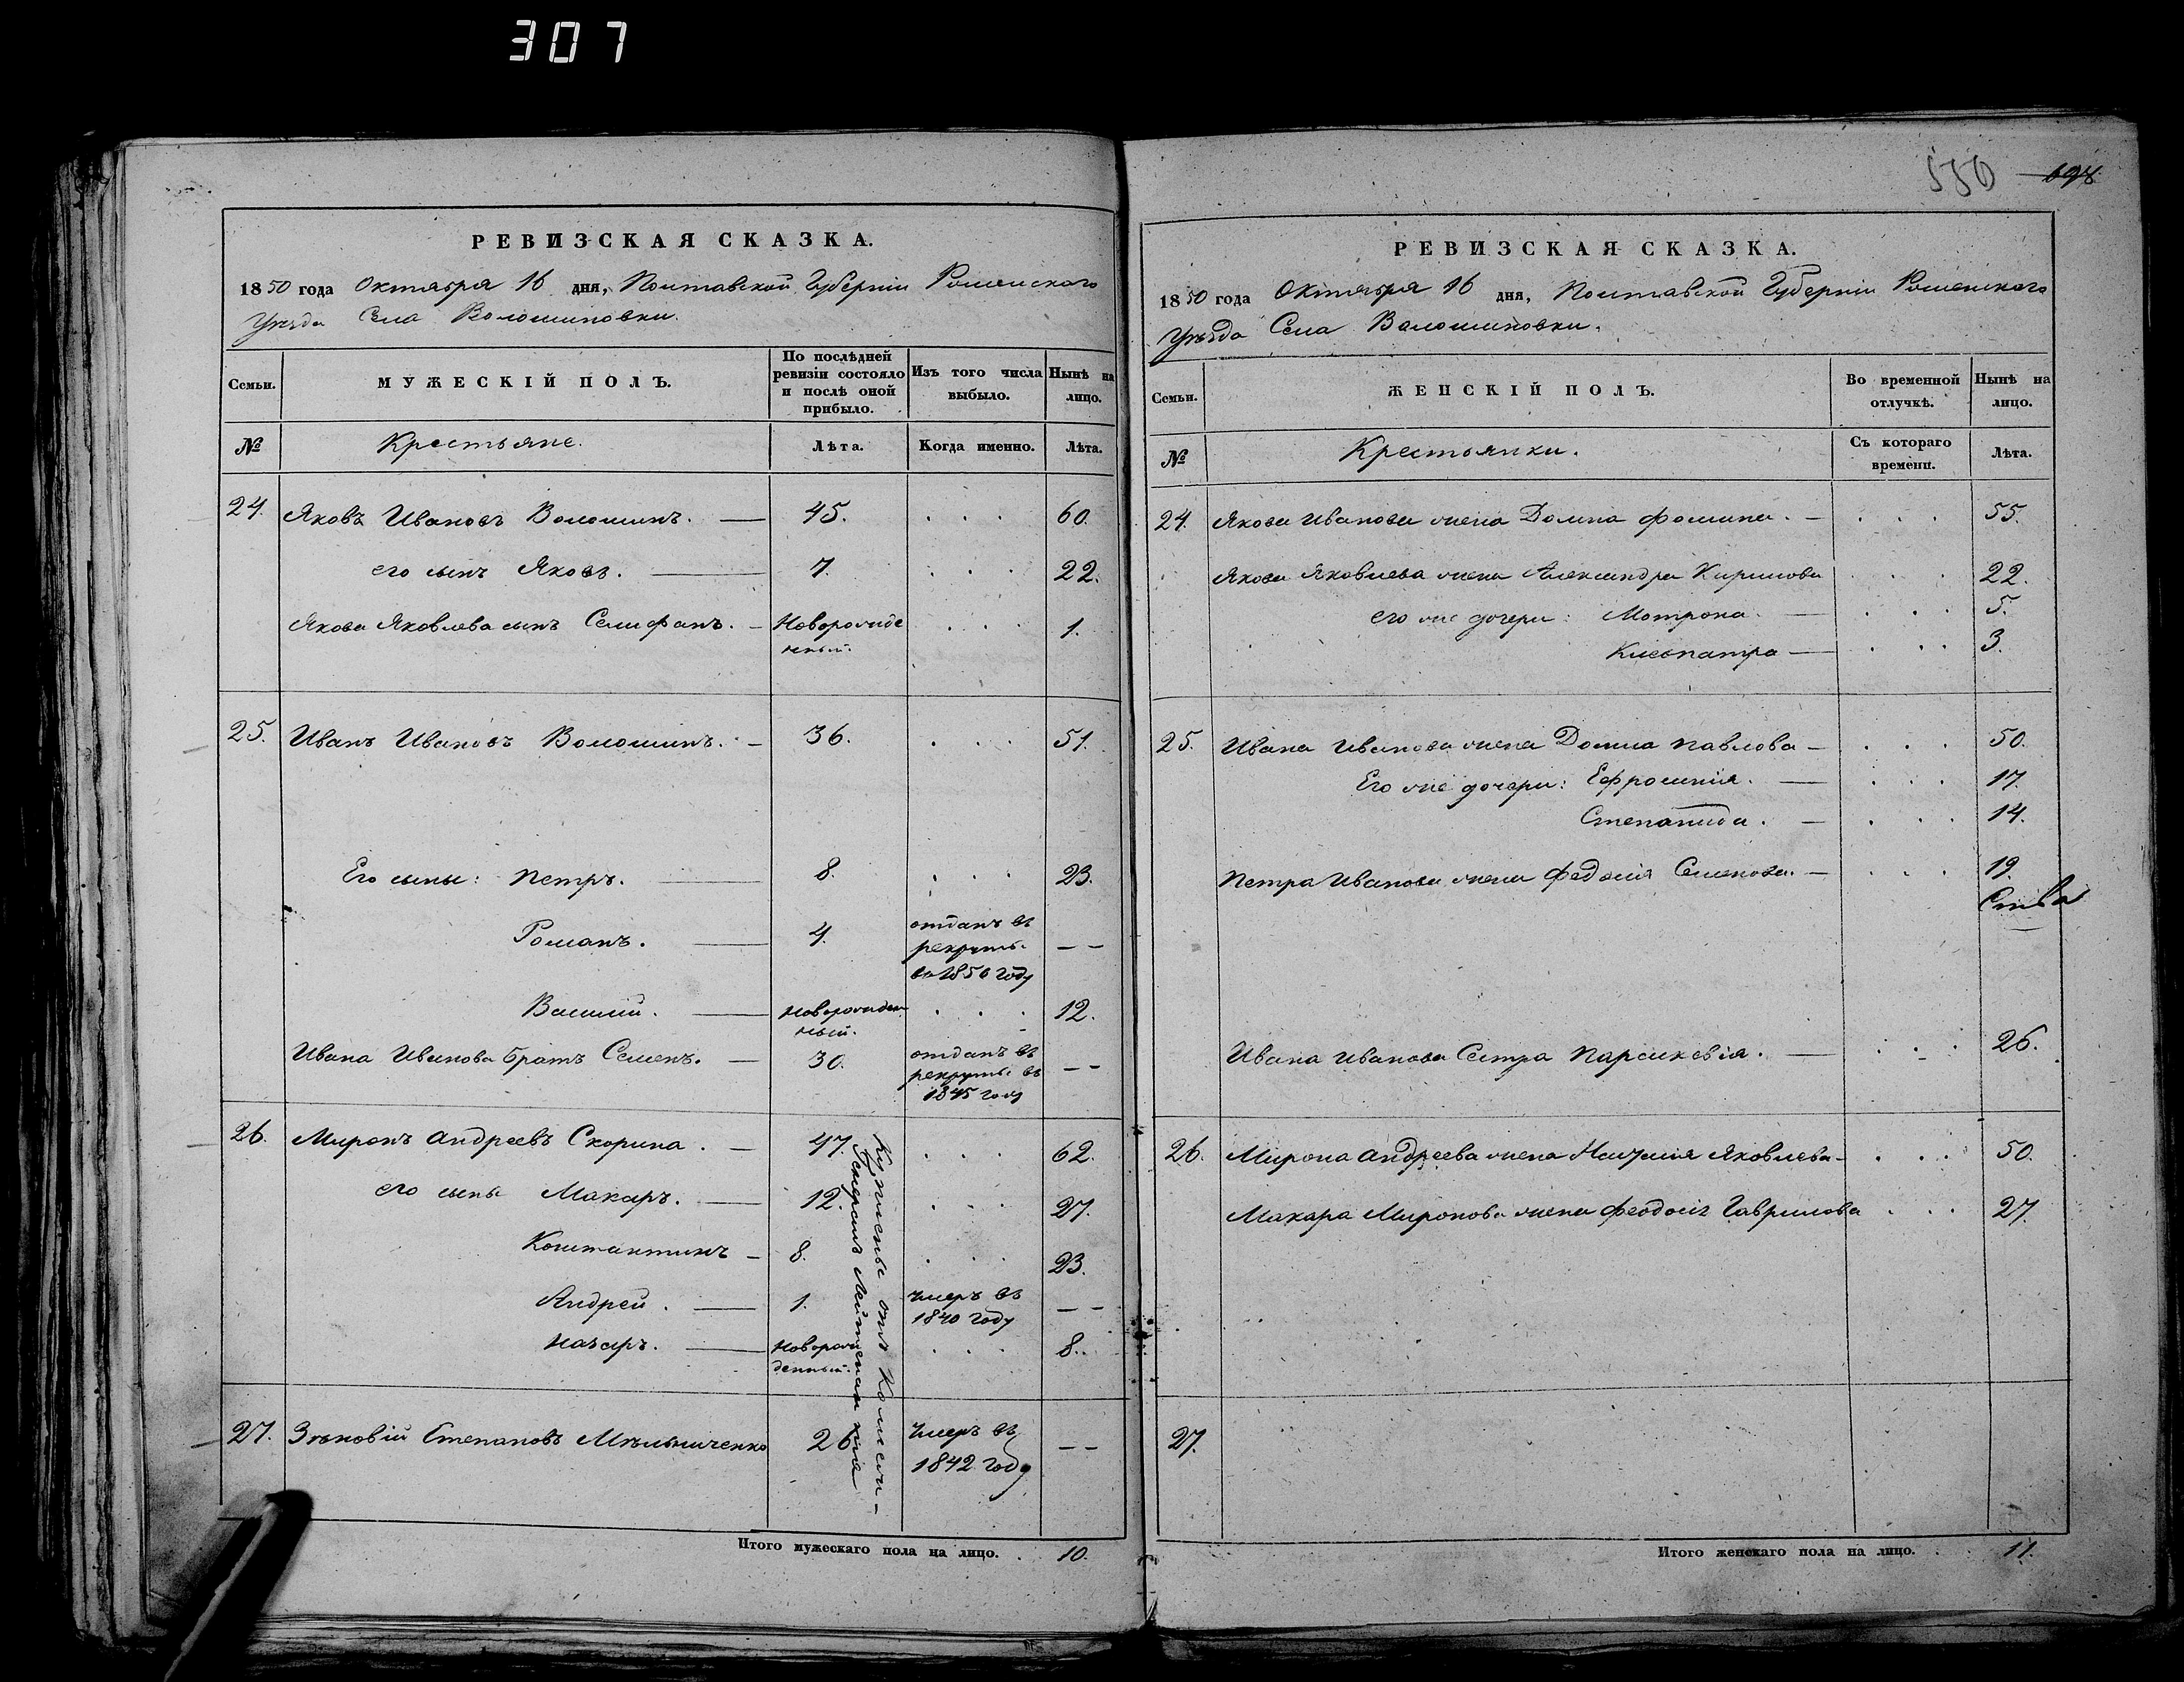 307
РЕВИЗСКАЯ СКАЗКА.
1850 года Октября 16 дня, Полтавской Губерніи Роменскаго
Уѣзда Села Волошиновки.
Семьи.
МУЖЕСКІЙ ПОЛЪ.
По послѣдней ревизіи состояло и послѣ оной прибыло.
Изъ того числа выбыло.
Нынѣ на лицо.
№
Крестьяне.
Лѣта.
Когда именно.
Лѣта.
24. Яковъ Ивановъ Волошинъ. — 45. . . . 60.
его сынъ Яковъ. — 7. . . . 22.
Якова Яковлева сынъ Селифанъ. — Новорожде . . . 1.
нный.
25. Иванъ Ивановъ Волошинъ. — 36. . . . 51.
Его сыны: Петръ. — 8. . . . 23.
Романъ. — 4. отданъ въ
рекруты — —
въ 1850 году
Василій. — Новорожден . . . 12.
ный.
Ивана Иванова братъ Семенъ. — 30. отданъ въ
рекруты въ — —
1845 году
26. Миронъ Андреевъ Скорина. — 47. . . . 62.
его сыны Макаръ. — 12. . . . 27.
Константинъ — 8. . . . 23.
Андрей. — 1. Умеръ въ
1840 году — —
Назаръ. — Новорож . . . 8.
денный.
Купленные отъ
27. Зѣновій Степановъ Мѣльниченко 26 Умеръ въ — —
1842 году
Итого мужескаго пола на лицо. . 10.
550 698
РЕВИЗСКАЯ СКАЗКА.
1850 года Октября 16 дня, Полтавской Губерніи Роменскаго
Уѣзда Села Волошиновки.
Семьи.
ЖЕНСКІЙ ПОЛЪ.
Во временной отлучкѣ.
Нынѣ на лицо.
№
Крестьянки.
Съ котораго времени.
Лѣта.
24. Якова Иванова жена Домна Фомина. — . . . 55.
Якова Яковлева жена Александра Кирилова . . . 22.
его же дочери: Мотрона. — . . . 5.
Клеопатра — . . . 3.
25. Ивана Иванова жена Домна Павлова — . . . 50.
Его же дочери: Ефросинія. — . . . 17.
Степанида. — . . . 14.
Петра Иванова жена Федосія Семенова. — . . . 19.
Ивана Иванова Сестра Параскевія. — . . . 26.
26. Мирона Андреева жена Наталія Яковлева — . . . 50.
Макара Миронова жена Феодосія Гаврилова . . . 27.
27.
Итого женскаго пола на лицо. . 11.